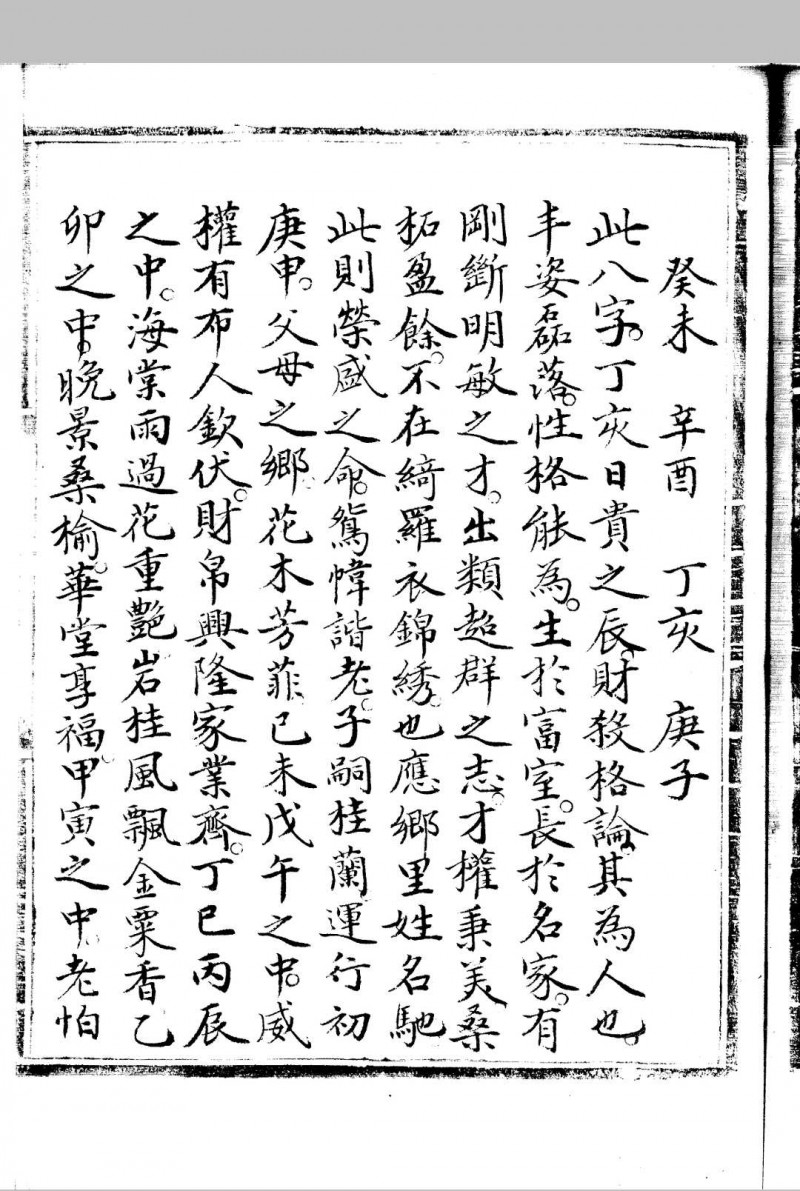 癸未　辛酉　丁亥　庚子
此八字。丁亥日貴之辰。財殺格論。其為人也。
丰姿磊落。性格能為。生於富室。長於名家。有
剛斷明敏之才。出類超群之志。才權秉美。桑
柘盈餘。不在綺羅衣錦綉。也應鄉里姓名馳
此則榮盛之命。鴛幃諧老。子嗣桂蘭。運行初
庚申。父母之鄉。花木芳菲。己未戊午之中。威
權有布人欽伏。財帛興隆家業齊。丁巳丙辰
之中。海棠雨過花重艷。岩桂風飄金粟香。乙
卯之中。晚景桑榆。華堂享福。甲寅之中。老怕